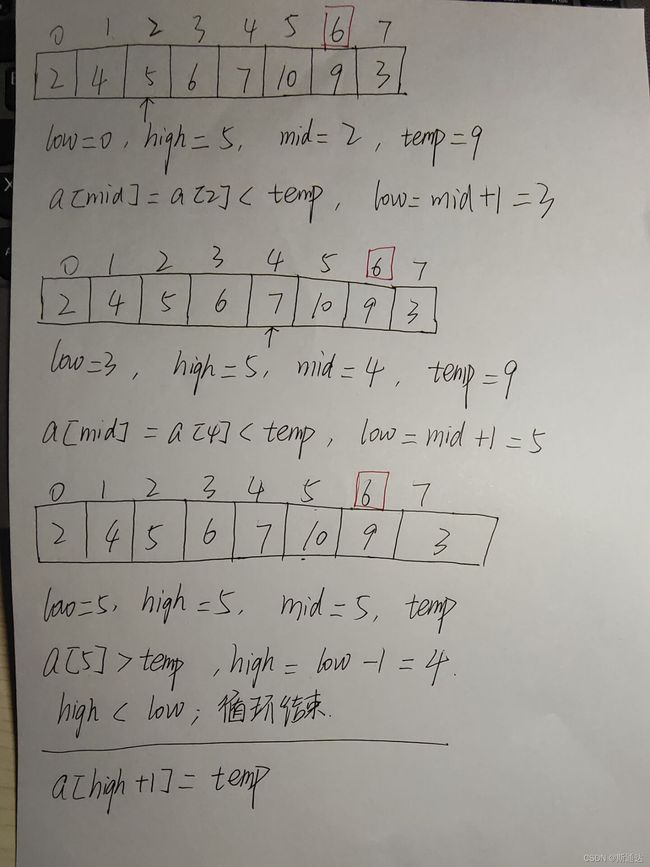 0 1 2 3 4 5 6 7
2 4 5 6 7 10 9 3
low=0, high=5, mid=2, temp=9
a[mid]=a[2]<temp, low=mid+1=3
0 1 2 3 4 5 6 7
2 4 5 6 7 10 9 3
low=3, high=5, mid=4, temp=9
a[mid]=a[4]<temp, low=mid+1=5
0 1 2 3 4 5 6 7
2 4 5 6 7 10 9 3
low=5, high=5, mid=5, temp
a[5]>temp, high=low-1=4.
high<low; 循环结束.
a[high+1]=temp
CSDN @斯通达